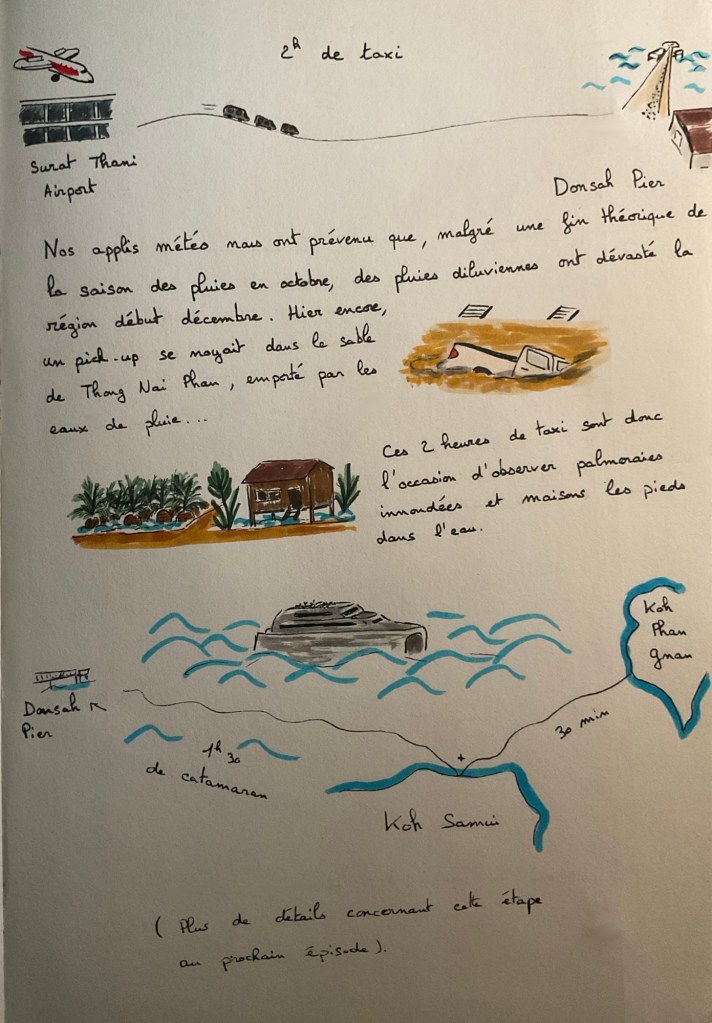 2h de taxi
Surat Thani
Airport
Donsah Pier
Nos applis météo nous ont prévenu que, malgré une fin théorique de
la saison des pluies en octobre, des pluies diluviennes ont dévasté la
région début décembre. Hier encore,
un pick-up se noyait dans le sable
de Thong Nai Phan, emporté par les
eaux de pluie...
Ces 2 heures de taxi sont donc
l'occasion d'observer palmeraies
innondées et maisons les pieds
dans l'eau.
Koh
Phan
Gnan
Donsah
Pier
30 min
1h 30
de catamaran
+
Koh Samui
( Plus de détails concernant cette étape
au prochain épisode ).